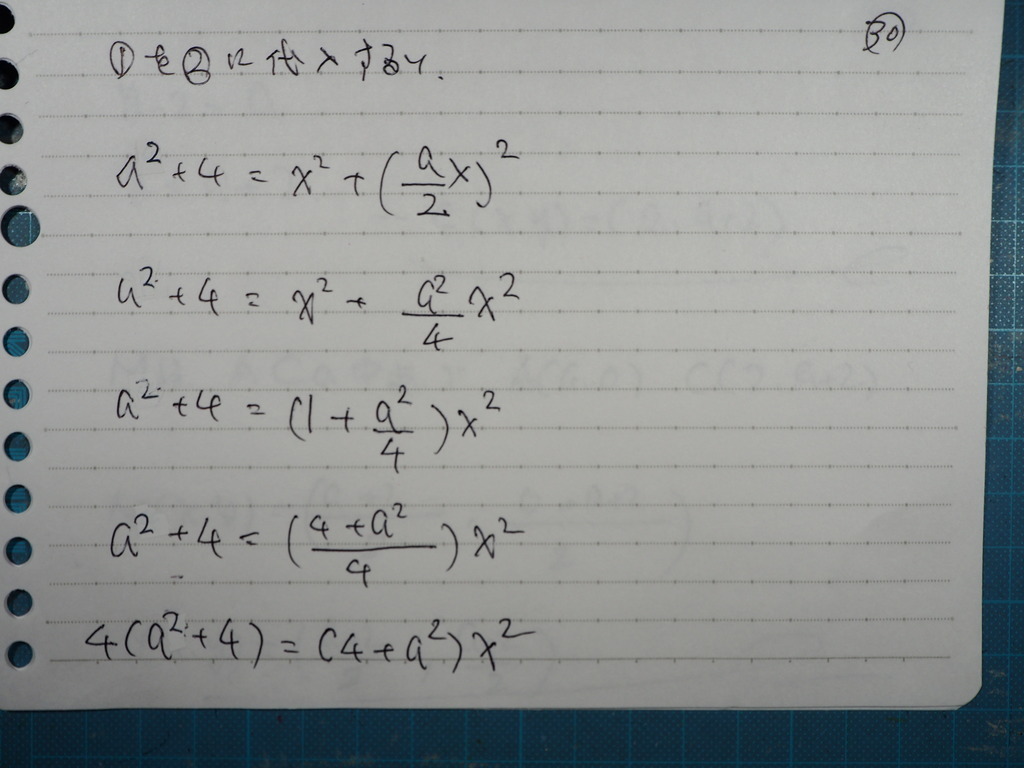 ㉚
①を②に代入すると.
a² + 4 = x² + (a/2 x)²
a² + 4 = x² + a²/4 x²
a² + 4 = (1 + a²/4) x²
a² + 4 = (4 + a²/4) x²
4(a² + 4) = (4 + a²) x²